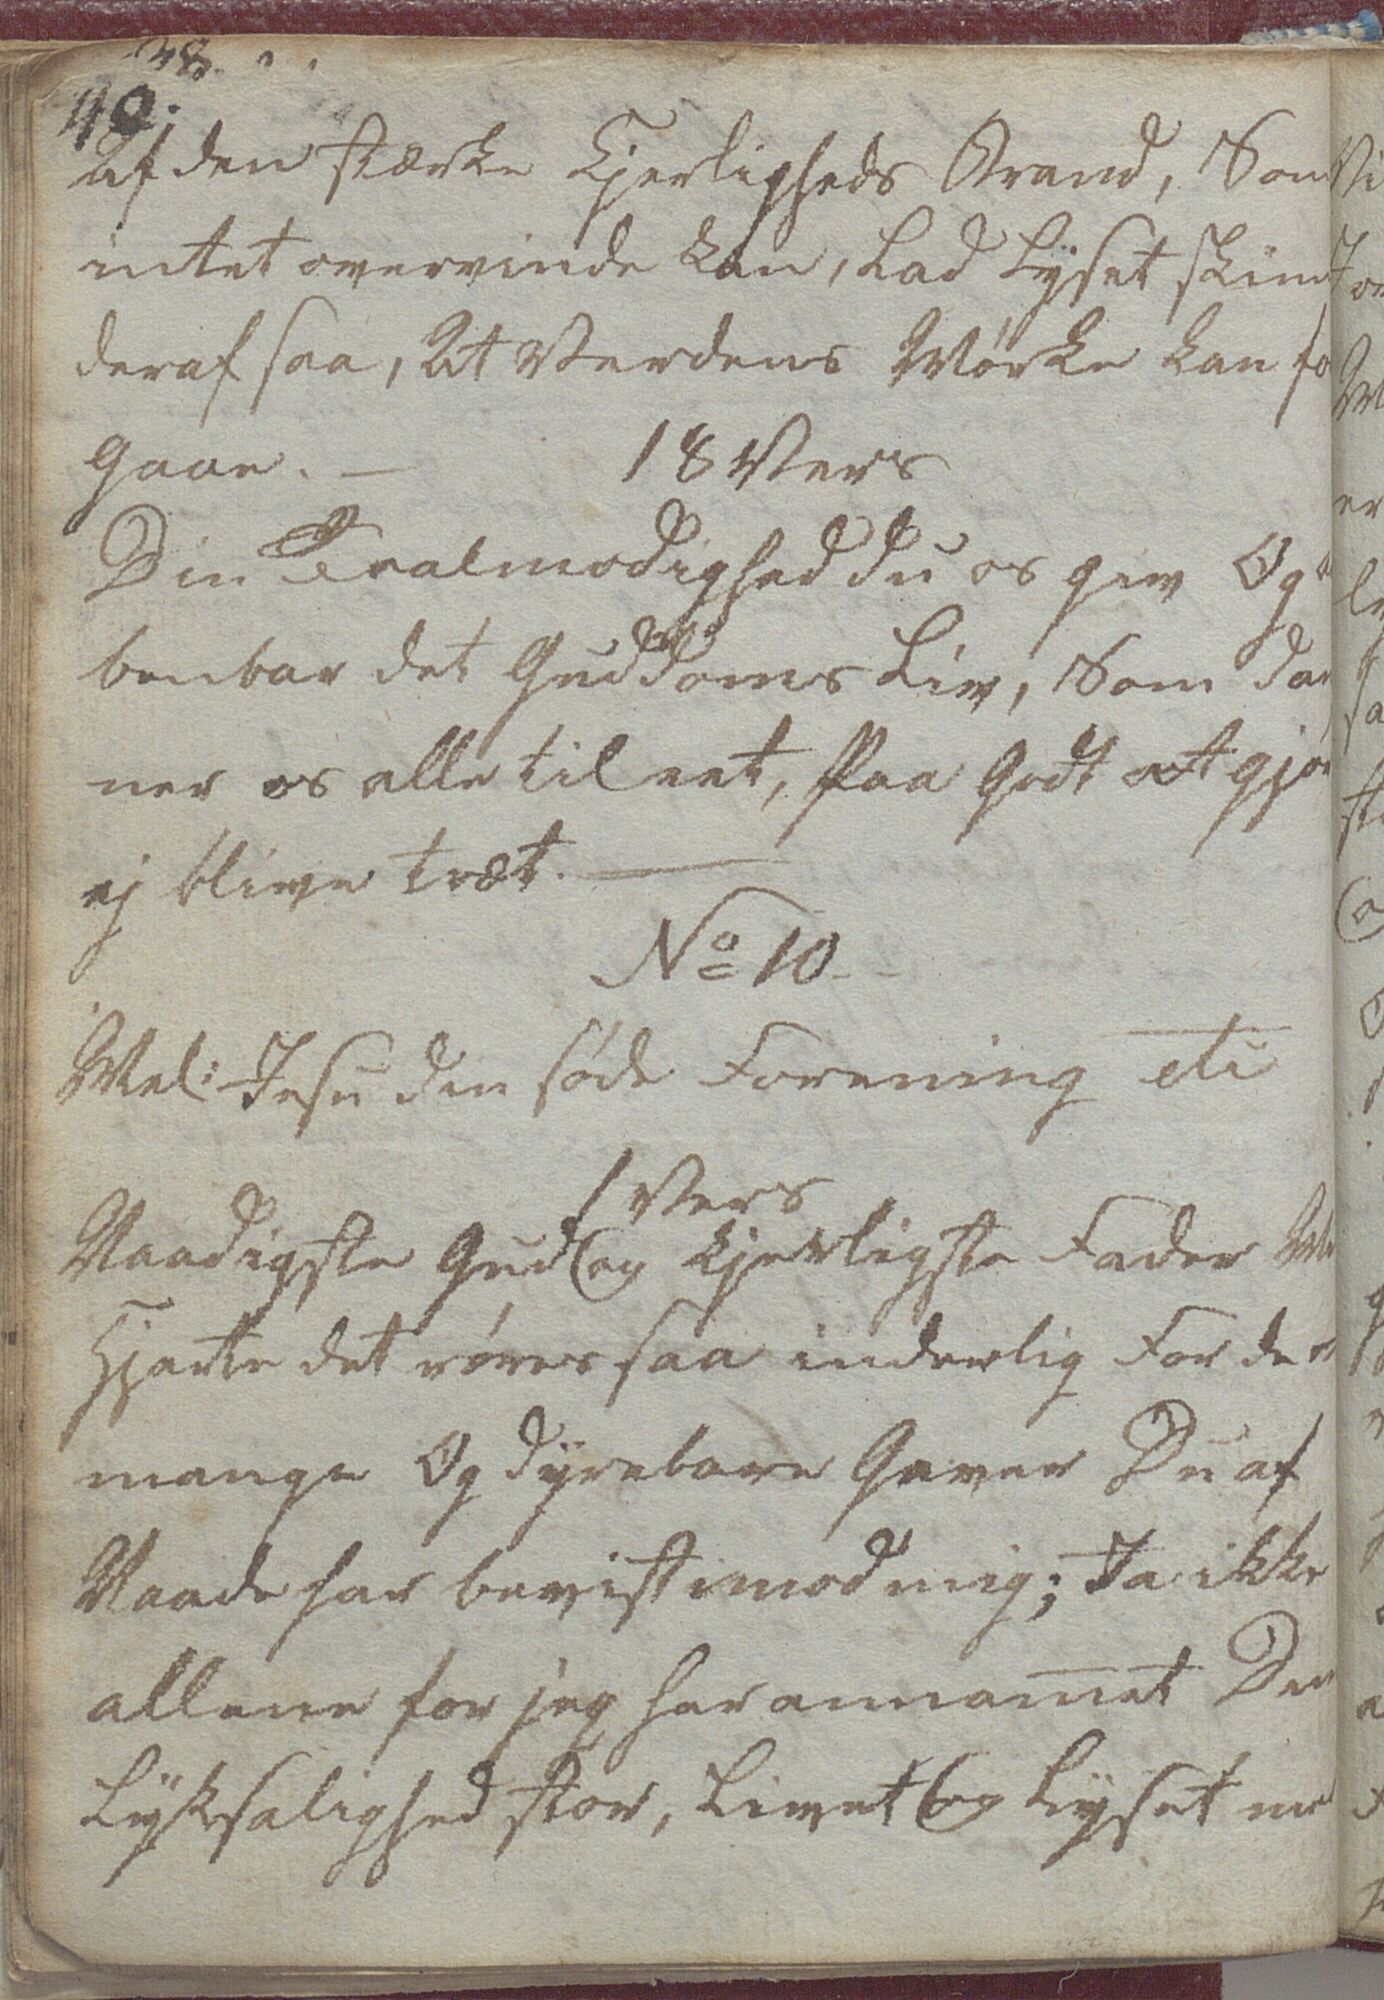 38.
40.
Af den stærke Kjerligheds Brand, Som
intet overvinde kan, Lad Lyset skin
deraf saa, At Verdens Mørke kan for
gaae. — 18 Vers
Din Taalmodighed du os giv Og
benbar det Guddoms Liv, Som dan
ner os alle til eet, Paa Godt at gjør
ej blive træt. —
No 10
Mel: Jesu din søde Forening etc
1 Vers
Naadigste Gud og kjerligste Fader
Hjærte det røres saa inderlig For de
mange Og dyrebare Gaver Du af
Naade har bevist imod mig; Ja ikke
allene for jeg har annamet Den
Lyksalighed stor, Livet og Lyset